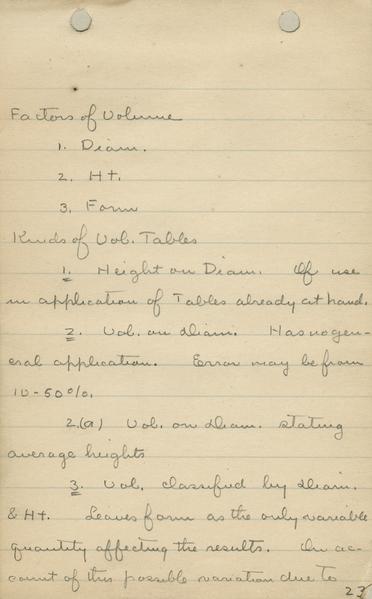 Factors of Volume
1. Diam.
2. Ht.
3. Form
Kinds of Vol. Tables
1. Height on Diam. Of use
in application of Tables already at hand.
2. Vol. on Diam. Has no gen-
eral application. Error may be from
10-50%.
2.(a) Vol. on Diam. stating
average heights
3. Vol. classified by Diam.
& Ht. Leaves form as the only variable
quantity affecting the results. On ac-
count of this possible variation due to
23